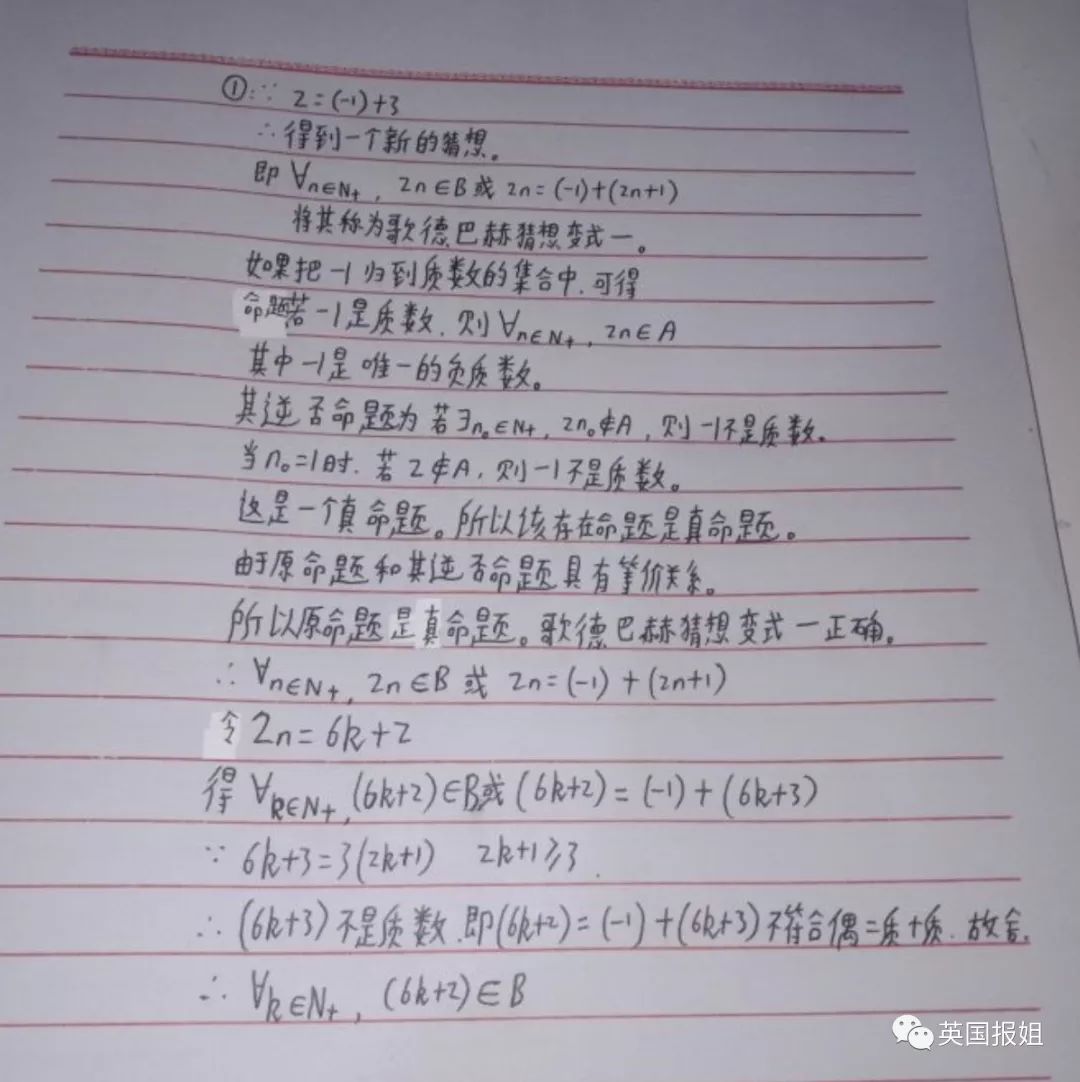 ①∵ 2=(-1)+3
∴得到一个新的猜想。
即 ∀n∈N+, 2n∈B或 2n=(-1)+(2n+1)
将其称为歌德巴赫猜想变式一。
如果把-1归到质数的集合中,可得
命题若-1是质数,则∀n∈N+, 2n∈A
其中-1是唯一的负质数。
其逆否命题为 若∃n₀∈N+, 2n₀∉A, 则-1不是质数。
当n₀=1时,若2∉A,则-1不是质数。
这是一个真命题。所以该存在命题是真命题。
由于原命题和其逆否命题具有等价关系。
所以原命题是真命题。歌德巴赫猜想变式一正确。
∴ ∀n∈N+, 2n∈B 或 2n=(-1)+(2n+1)
令 2n=6k+2
得 ∀k∈N+, (6k+2)∈B或(6k+2)=(-1)+(6k+3)
∵ 6k+3=3(2k+1) 2k+1≥3.
∴ (6k+3)不是质数.即(6k+2)=(-1)+(6k+3)不符合偶=质+质.故舍.
∴ ∀k∈N+, (6k+2)∈B
英国报姐